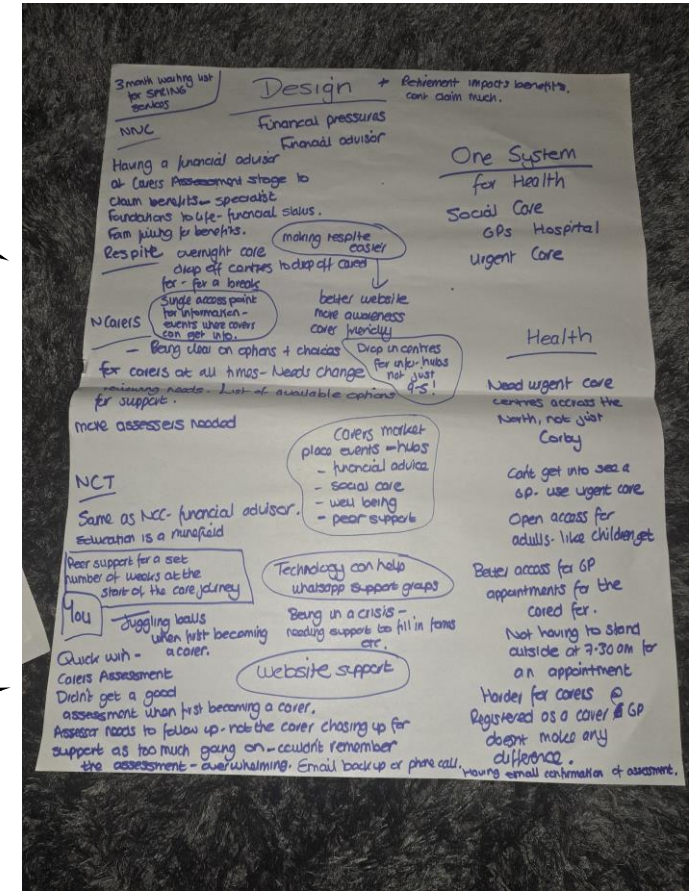 3 month waiting list
for SPRING
services
Design
* Retirement impacts benefits,
cant claim much.
NNC
Financial pressures
Financial advisor
Having a financial advisor
at Carers Assessment stage to
claim benefits - specialist
Foundations to life - financial status.
for benefits.
Respite overnight care
drop off centres to drop off cared
for - for a break
making respite
easier
better website
more awareness
carer friendly
NCarers
Single access point
for information -
events where carers
can get info.
- Being clear on options + choices
for carers at all times - Needs change
reviewing needs. List of available options
for support.
more assessers needed
Drop in centres
for info - hubs
not just
9-5!
carers market
place events - hubs
- financial advice
- social care
- well being
- peer support
NCT
Same as NCC - financial advisor.
Education is a minefield
Peer support for a set
number of weeks at the
start of the care journey
Technology can help
whatsapp support groups
You
Juggling balls
when first becoming
a carer.
Being in a crisis -
needing support to fill in forms
etc.
Quick win -
Carers Assessment
Website support
Didn't get a good
assessment when first becoming a carer.
Assessor needs to follow up - not the carer chasing up for
support as too much going on - couldn't remember
the assessment - overwhelming. Email back up or phone call.
Having email confirmation of assessment.
One System
for Health
Social Care
GPs Hospital
Urgent Care
Health
Need urgent care
centres accross the
North, not just
Corby
Cant get into see a
GP - use urgent care
Open access for
adults - like children get
Better access for GP
appointments for the
cared for.
Not having to stand
outside at 7.30am for
an appointment
Harder for carers @
Registered as a carer GP
doesnt make any
difference.